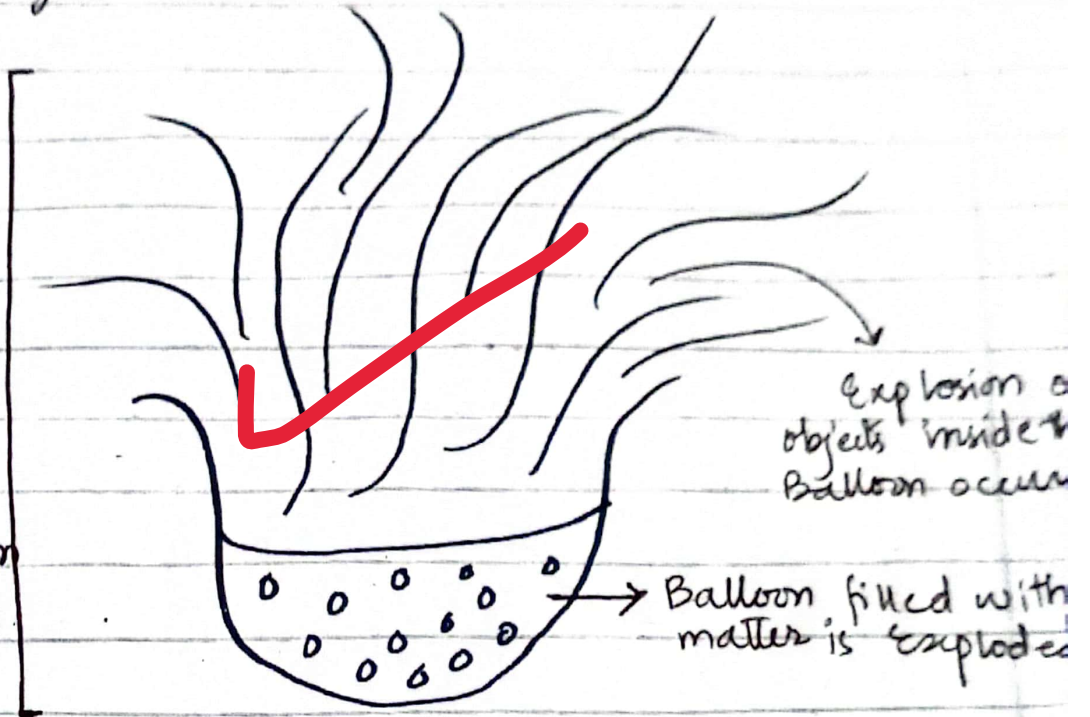 Explosion o
objects inside th
Balloon occur
Balloon filled with
matter is exploded